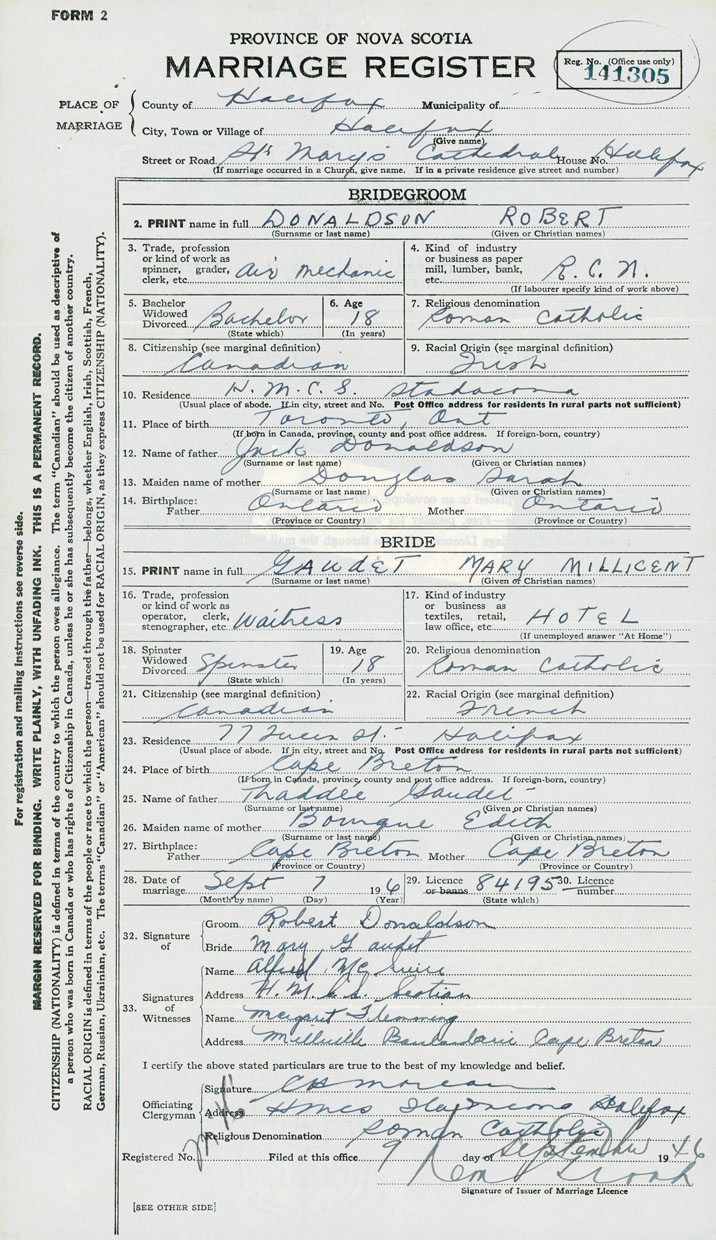 FORM 2
PROVINCE OF NOVA SCOTIA
MARRIAGE REGISTER
Reg. No. (Office use only)
141305
PLACE OF MARRIAGE
County of Halifax Municipality of
City, Town or Village of Halifax
(Give name)
Street or Road St. Mary's Cathedral House No. Halifax
(If marriage occurred in a Church, give name. If in a private residence give street and number)
BRIDEGROOM
2. PRINT name in full DONALDSON ROBERT
(Surname or last name) (Given or Christian names)
3. Trade, profession or kind of work as spinner, grader, clerk, etc. Air Mechanic
4. Kind of industry or business as paper mill, lumber, bank, etc. R.C.N.
(If labourer specify kind of work above)
5. Bachelor Widowed Divorced Bachelor
(State which)
6. Age 18
(In years)
7. Religious denomination Roman Catholic
8. Citizenship (see marginal definition) Canadian
9. Racial Origin (see marginal definition) Irish
10. Residence H.M.C.S. Stadacona
(Usual place of abode. If in city, street and No. Post Office address for residents in rural parts not sufficient)
11. Place of birth Toronto, Ont
(If born in Canada, province, county and post office address. If foreign-born, country)
12. Name of father Jack Donaldson
(Surname or last name) (Given or Christian names)
13. Maiden name of mother Douglas Sarah
(Surname or last name) (Given or Christian names)
14. Birthplace: Father Ontario Mother Ontario
(Province or Country) (Province or Country)
BRIDE
15. PRINT name in full GAUDET MARY MILLICENT
(Surname or last name) (Given or Christian names)
16. Trade, profession or kind of work as operator, clerk, stenographer, etc. Waitress
17. Kind of industry or business as textiles, retail, law office, etc. HOTEL
(If unemployed answer "At Home")
18. Spinster Widowed Divorced Spinster
(State which)
19. Age 18
(In years)
20. Religious denomination Roman Catholic
21. Citizenship (see marginal definition) Canadian
22. Racial Origin (see marginal definition) French
23. Residence 77 Queen St. Halifax
(Usual place of abode. If in city, street and No. Post Office address for residents in rural parts not sufficient)
24. Place of birth Cape Breton
(If born in Canada, province, county and post office address. If foreign-born, country)
25. Name of father Thaddee Gaudet
(Surname or last name) (Given or Christian names)
26. Maiden name of mother Bourque Edith
(Surname or last name) (Given or Christian names)
27. Birthplace: Father Cape Breton Mother Cape Breton
(Province or Country) (Province or Country)
28. Date of marriage Sept 7 1946
(Month by name) (Day) (Year)
29. Licence or banns 84195
(State which)
30. Licence number
32. Signature of
Groom Robert Donaldson
Bride Mary Gaudet
33. Signatures of Witnesses
Name Alfred McGuire
Address H.M.C.S. Scotian
Name Margaret Flemming
Address Millville Boularderie Cape Breton
I certify the above stated particulars are true to the best of my knowledge and belief.
Officiating Clergyman
Signature
Address HMCS Halifax
Religious Denomination Roman Catholic
Registered No. Filed at this office 9 day of September 1946
Signature of Issuer of Marriage Licence
[SEE OTHER SIDE]
For registration and mailing instructions see reverse side.
MARGIN RESERVED FOR BINDING. WRITE PLAINLY, WITH UNFADING INK. THIS IS A PERMANENT RECORD.
CITIZENSHIP (NATIONALITY) is defined in terms of the country to which the person owes allegiance. The term "Canadian" should be used as descriptive of
a person who was born in Canada or who has rights of Citizenship in Canada, unless he or she has subsequently become the citizen of another country.
RACIAL ORIGIN is defined in terms of the people or race to which the person—traced through the father—belongs, whether English, Irish, Scottish, French,
German, Russian, Ukrainian, etc. The terms "Canadian" or "American" should not be used for RACIAL ORIGIN, as they express CITIZENSHIP (NATIONALITY).